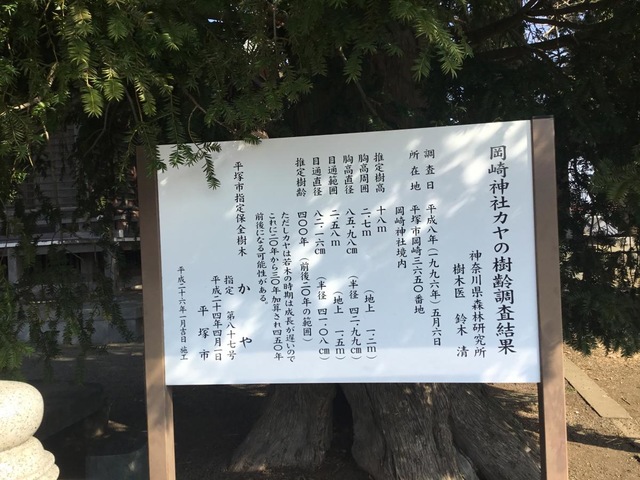 岡崎神社カヤの樹齢調査結果
神奈川県森林研究所
樹木医 鈴木 清
調査日 平成八年(一九九六年)五月六日
所在地 平塚市岡崎三六五〇番地
岡崎神社境内
推定樹高 十八m
胸高周囲 二.七m (地上 一.二m)
胸高直径 八五.九八㎝ (半径 四二.九九㎝)
目通範囲 二.五八m (地上 一.五m)
目通直径 八二.一六㎝ (半径 四一.〇八㎝)
推定樹齢 四〇〇年 (前後二〇年の範囲)
ただしカヤは若木の時期は成長が遅いので
これに二〇年から三〇年加算され四五〇年
前後になる可能性がある。
平塚市指定保全樹木
かや
指定 第八十七号
平成二十四年四月一日
平塚市
平成二十六年一月吉日 施工